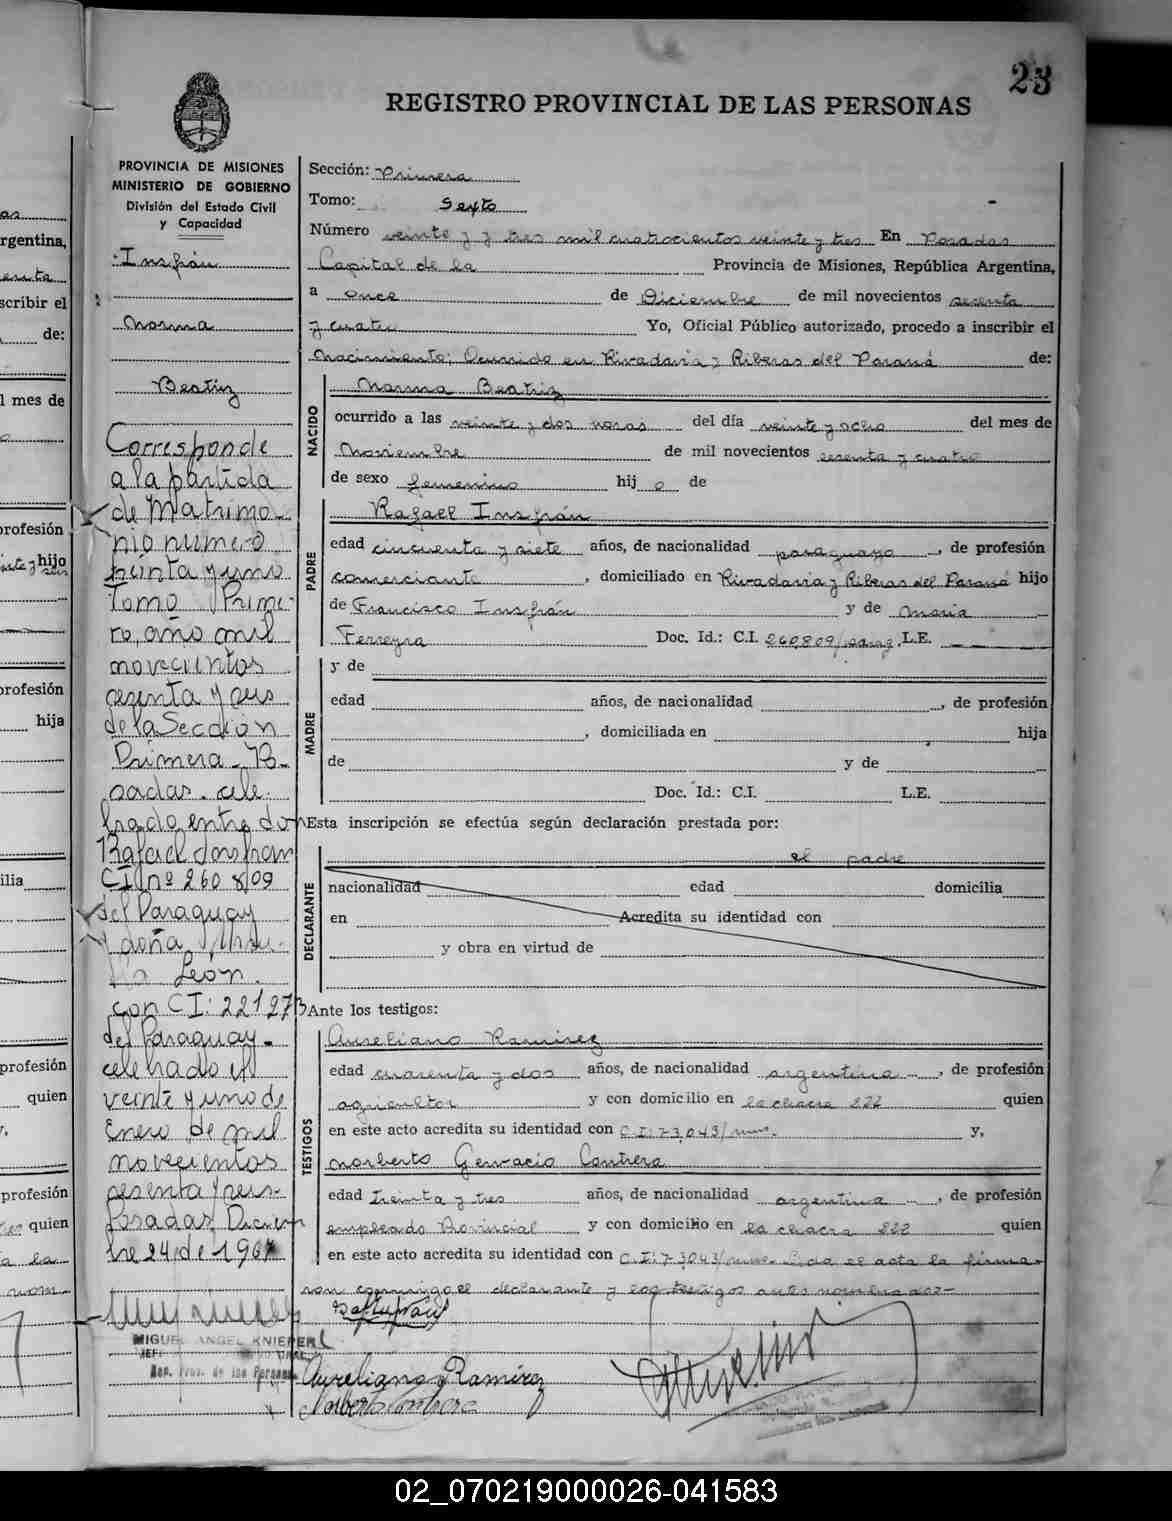 23
REGISTRO PROVINCIAL DE LAS PERSONAS
PROVINCIA DE MISIONES
MINISTERIO DE GOBIERNO
División del Estado Civil
y Capacidad
Insfrán
Norma
Beatriz
Corresponde
a la partida
de Matrimo-
nio numero
treinta y uno
Tomo Prime-
ro, año mil
novecientos
sesenta y seis
de la Sección
Primera - Po-
sadas. cele-
brado entre don
Rafael Insfran
CI nº 260 809
del Paraguay
y doña
León.
con CI: 221273
del Paraguay.
celebrado el
veinte y uno de
Enero de mil
novecientos
sesenta y seis.
Posadas, Diciem
bre 24 de 1967
MIGUEL ANGEL KNIEPER
JEFE
Reg. Prov. de las Personas
Sección: Primera
Tomo: Sexto
Número veinte y y tres mil cuatrocientos veinte y tres En Posadas
Capital de la Provincia de Misiones, República Argentina,
a once de Diciembre de mil novecientos sesenta
y cuatro Yo, Oficial Público autorizado, procedo a inscribir el
nacimiento; Ocurrido en Rivadavia y Riberas del Paraná de:
NACIDO
Norma Beatriz
ocurrido a las veinte y dos horas del día veinte y ocho del mes de
Noviembre de mil novecientos sesenta y cuatro
de sexo femenino hij o de
PADRE
Rafael Insfrán
edad cincuenta y siete años, de nacionalidad paraguayo, de profesión
comerciante, domiciliado en Rivadavia y Riberas del Paraná hijo
de Francisco Insfrán y de Maria
Ferreyra Doc. Id.: C.I. 260,809/parag. L.E.
MADRE
y de
edad años, de nacionalidad , de profesión
, domiciliada en hija
de y de
Doc. Id.: C.I. L.E.
Esta inscripción se efectúa según declaración prestada por:
DECLARANTE
el padre
nacionalidad edad domicilia
en Acredita su identidad con
y obra en virtud de
Ante los testigos:
TESTIGOS
Aureliano Ramirez
edad cuarenta y dos años, de nacionalidad argentina, de profesión
agricultor y con domicilio en la chacra 222 quien
en este acto acredita su identidad con C.I: 73,043/mnes. y,
Norberto Gervacio Contrera
edad treinta y tres años, de nacionalidad argentina, de profesión
empleado Provincial y con domicilio en la chacra 222 quien
en este acto acredita su identidad con C.I: 73043/mnes. Leida el acta la firma-
ron conmigo, el declarante y los testigos antes nombrados-
Aureliano Ramirez
Norberto Contrera
as
rgentina,
enta
scribir el
de:
l mes de
profesión
hijo
profesión
hija
ilia
profesión
quien
y,
profesión
quien
a la
nom.
02_070219000026-041583